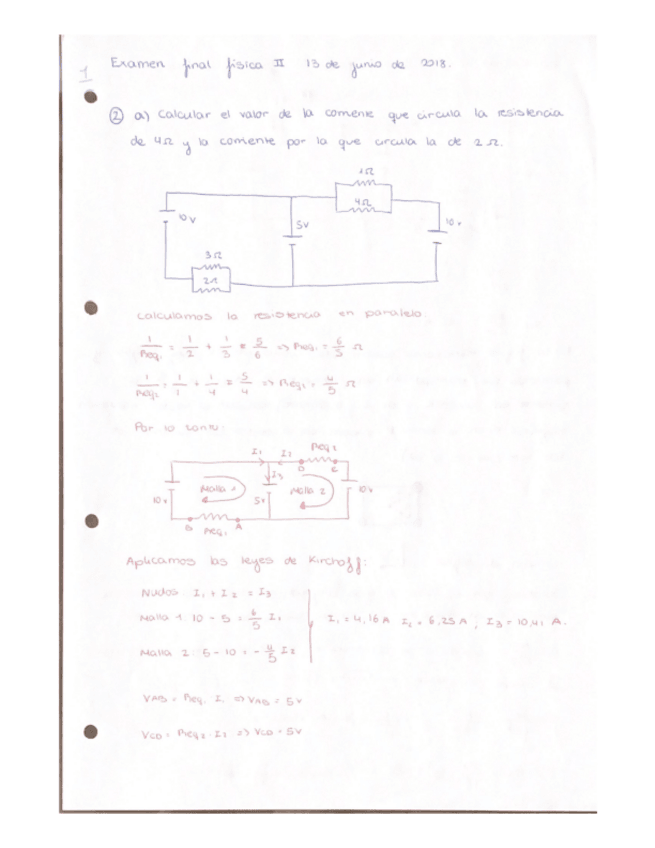 1
Examen final física II 13 de junio de 2018.
② a) Calcular el valor de la corriente que circula la resistencia
de 4Ω y la corriente por la que circula la de 2Ω.
1Ω
4Ω
10 V
5V
10 v
3Ω
2Ω
Calculamos la resistencia en paralelo.
1/Req1 = 1/2 + 1/3 = 5/6 => Req1 = 6/5 Ω
1/Req2 = 1/1 + 1/4 = 5/4 => Req1 = 4/5 Ω
Por lo tanto:
I1 I2 Req2
D C
I3
10v Malla 1 5v Malla 2 10v
B Req1 A
Aplicamos las leyes de Kirchoff:
Nudos I1 + I2 = I3
Malla 1 10 - 5 = 6/5 I1
I1 = 4,16 A I2 = 6,25 A ; I3 = 10,41 A.
Malla 2 5 - 10 = - 4/5 I2
VAB = Req1 I1 => VAB = 5v
VCD = Req2 · I2 => VCD = 5V